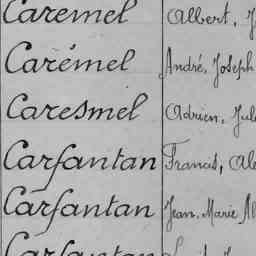 Caremel Albert, J
Carémel André, Joseph
Caresmel Adrien, Jul
Carfantan Francis, Ale
Carfantan Jean, Marie Al
Carfantan